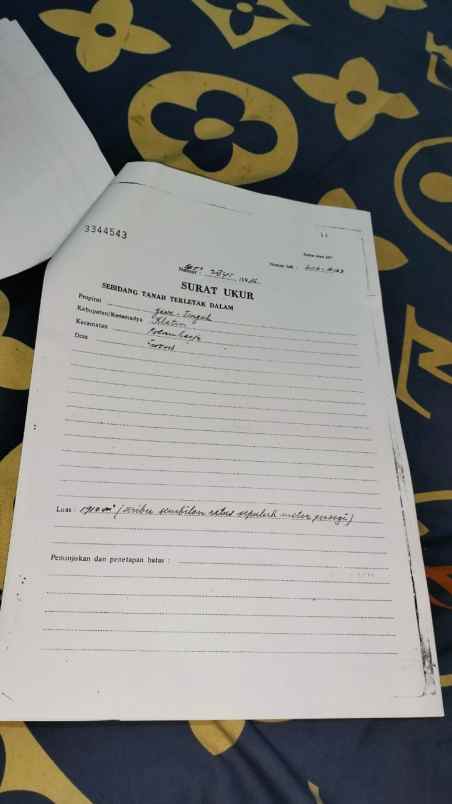 3344543
SURAT UKUR
SEBIDANG TANAH TERLETAK DALAM
Propinsi Jawa - Tengah
Kabupaten/Kotamadya Klaten
Kecamatan
Desa
Luas : 1910 m² (seribu sembilan ratus sepuluh meter persegi)
Penunjukan dan penetapan batas :